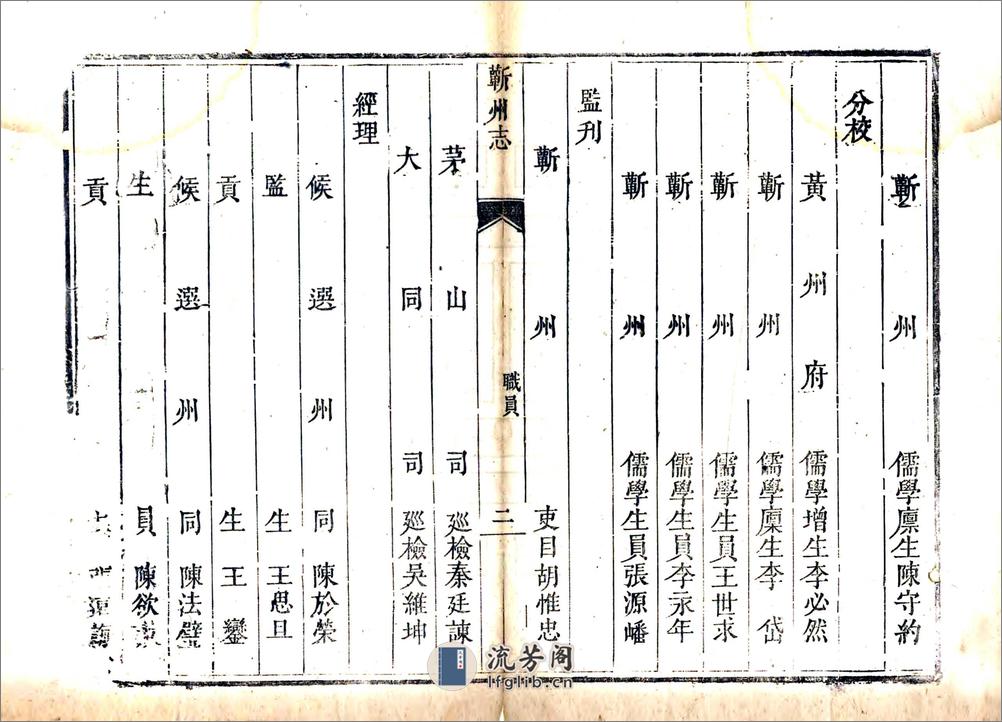 蘄州儒學廪生陳守約
分校
黃州府儒學增生李必然
蘄州儒學廪生李岱
蘄州儒學生員王世求
蘄州儒學生員李永年
蘄州儒學生員張源皤
監刋
蘄州吏目胡惟忠
蘄州志
職員
二
茅山司廵檢秦廷諫
大同司廵檢吳維坤
經理
候選州同陳於榮
監生王思旦
貢生王鑾
候選州同陳法璧
生員陳欲
貢
流芳阁
lfglib.cn